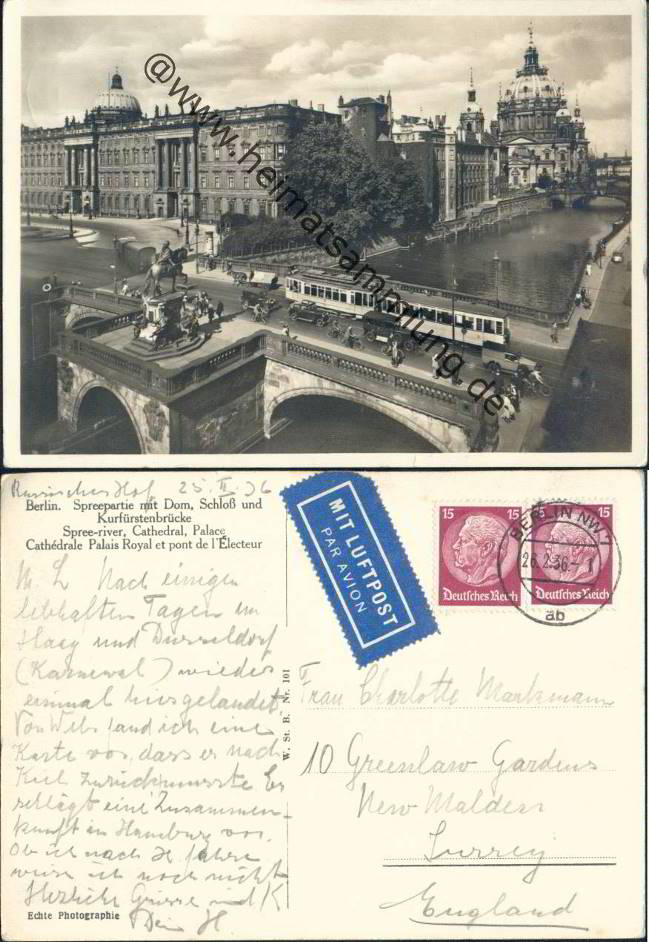 @www.heimatsammlung.de
Russischer Hof 25 II 36
Berlin. Spreepartie mit Dom, Schloß und
Kurfürstenbrücke
Spree-river, Cathedral, Palace
Cathédrale Palais Royal et pont de l'Électeur
M. L Nach einigen
lebhaften Tagen im
Haag und Düsseldorf
(Karneval) wieder
einmal hier gelandet.
Von fand ich eine
Karte vor, dass er nach
Kiel zurückmusste Er
schlägt eine Zusammen-
kunft in Hamburg vor.
Ob ich nach H fahre
weiss ich noch nicht
Herzliche Grüsse und K
Dein H
Echte Photographie
W. St. B. Nr. 101
MIT LUFTPOST
PAR AVION
15
Deutsches Reich
15
Deutsches Reich
BERLIN NW 7
26.2.36.-1
ab
Frau Charlotte Markmann
10 Greenlaw Gardens
New Malden
Surrey
England